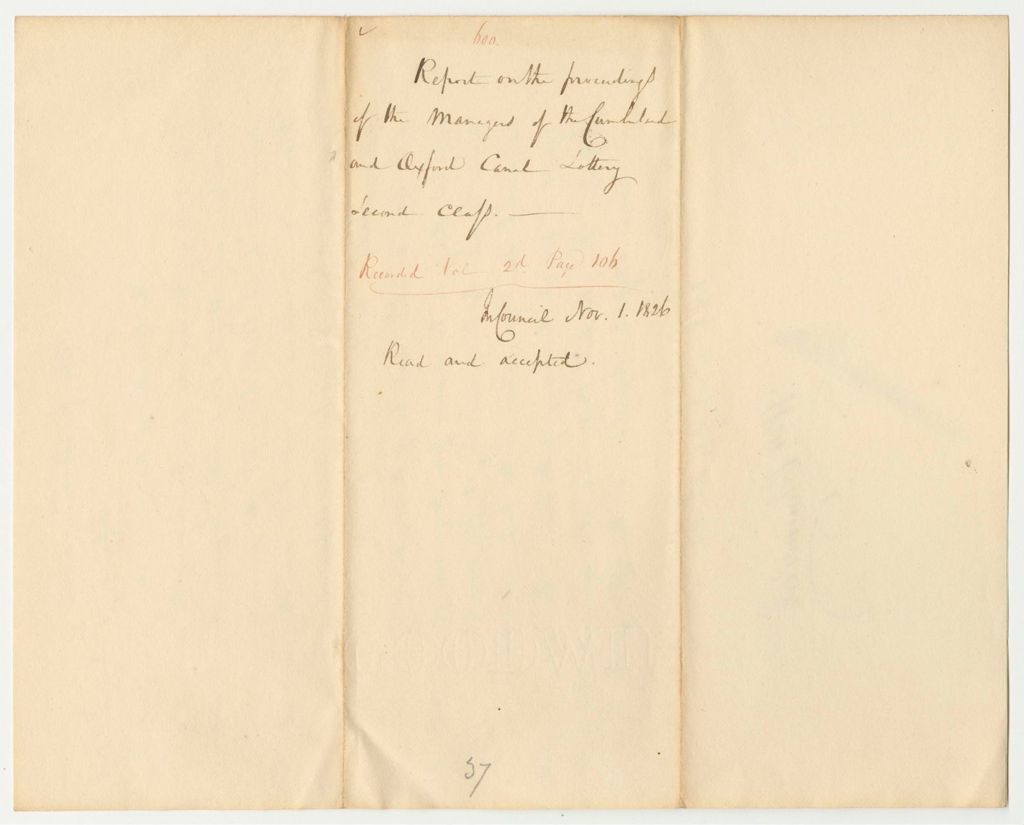 600.
Report on the proceedings
of the Managers of the Cumberland
and Oxford Canal Lottery
Second Class.
Recorded Vol 2d Page 106
In Council Nov. 1. 1826
Read and accepted.
37